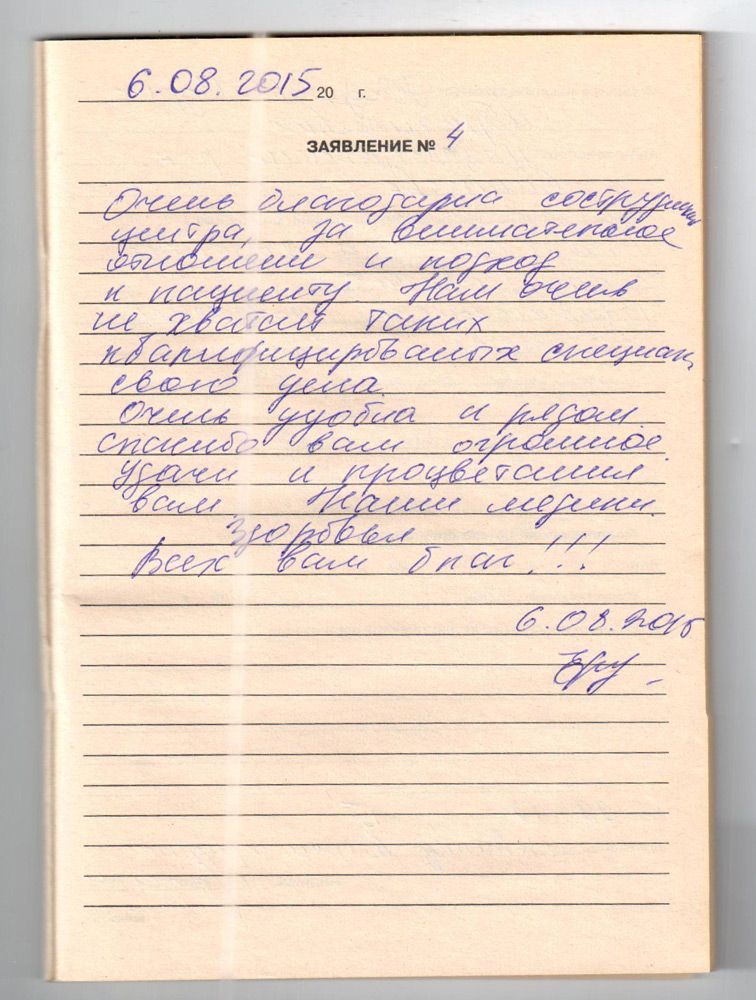 6.08.2015 20 г.
ЗАЯВЛЕНИЕ № 4
Очень благодарна сотрудникам
центра, за внимательное
отношение и подход
к пациенту. Нам очень
не хватает таких
квалифицированых специал.
свого дела.
Очень удобна и рядом.
спасибо вам огромное.
удачи и процветания
вам Наши медики.
Здоровья
Всех вам благ!!!
6.08.2015